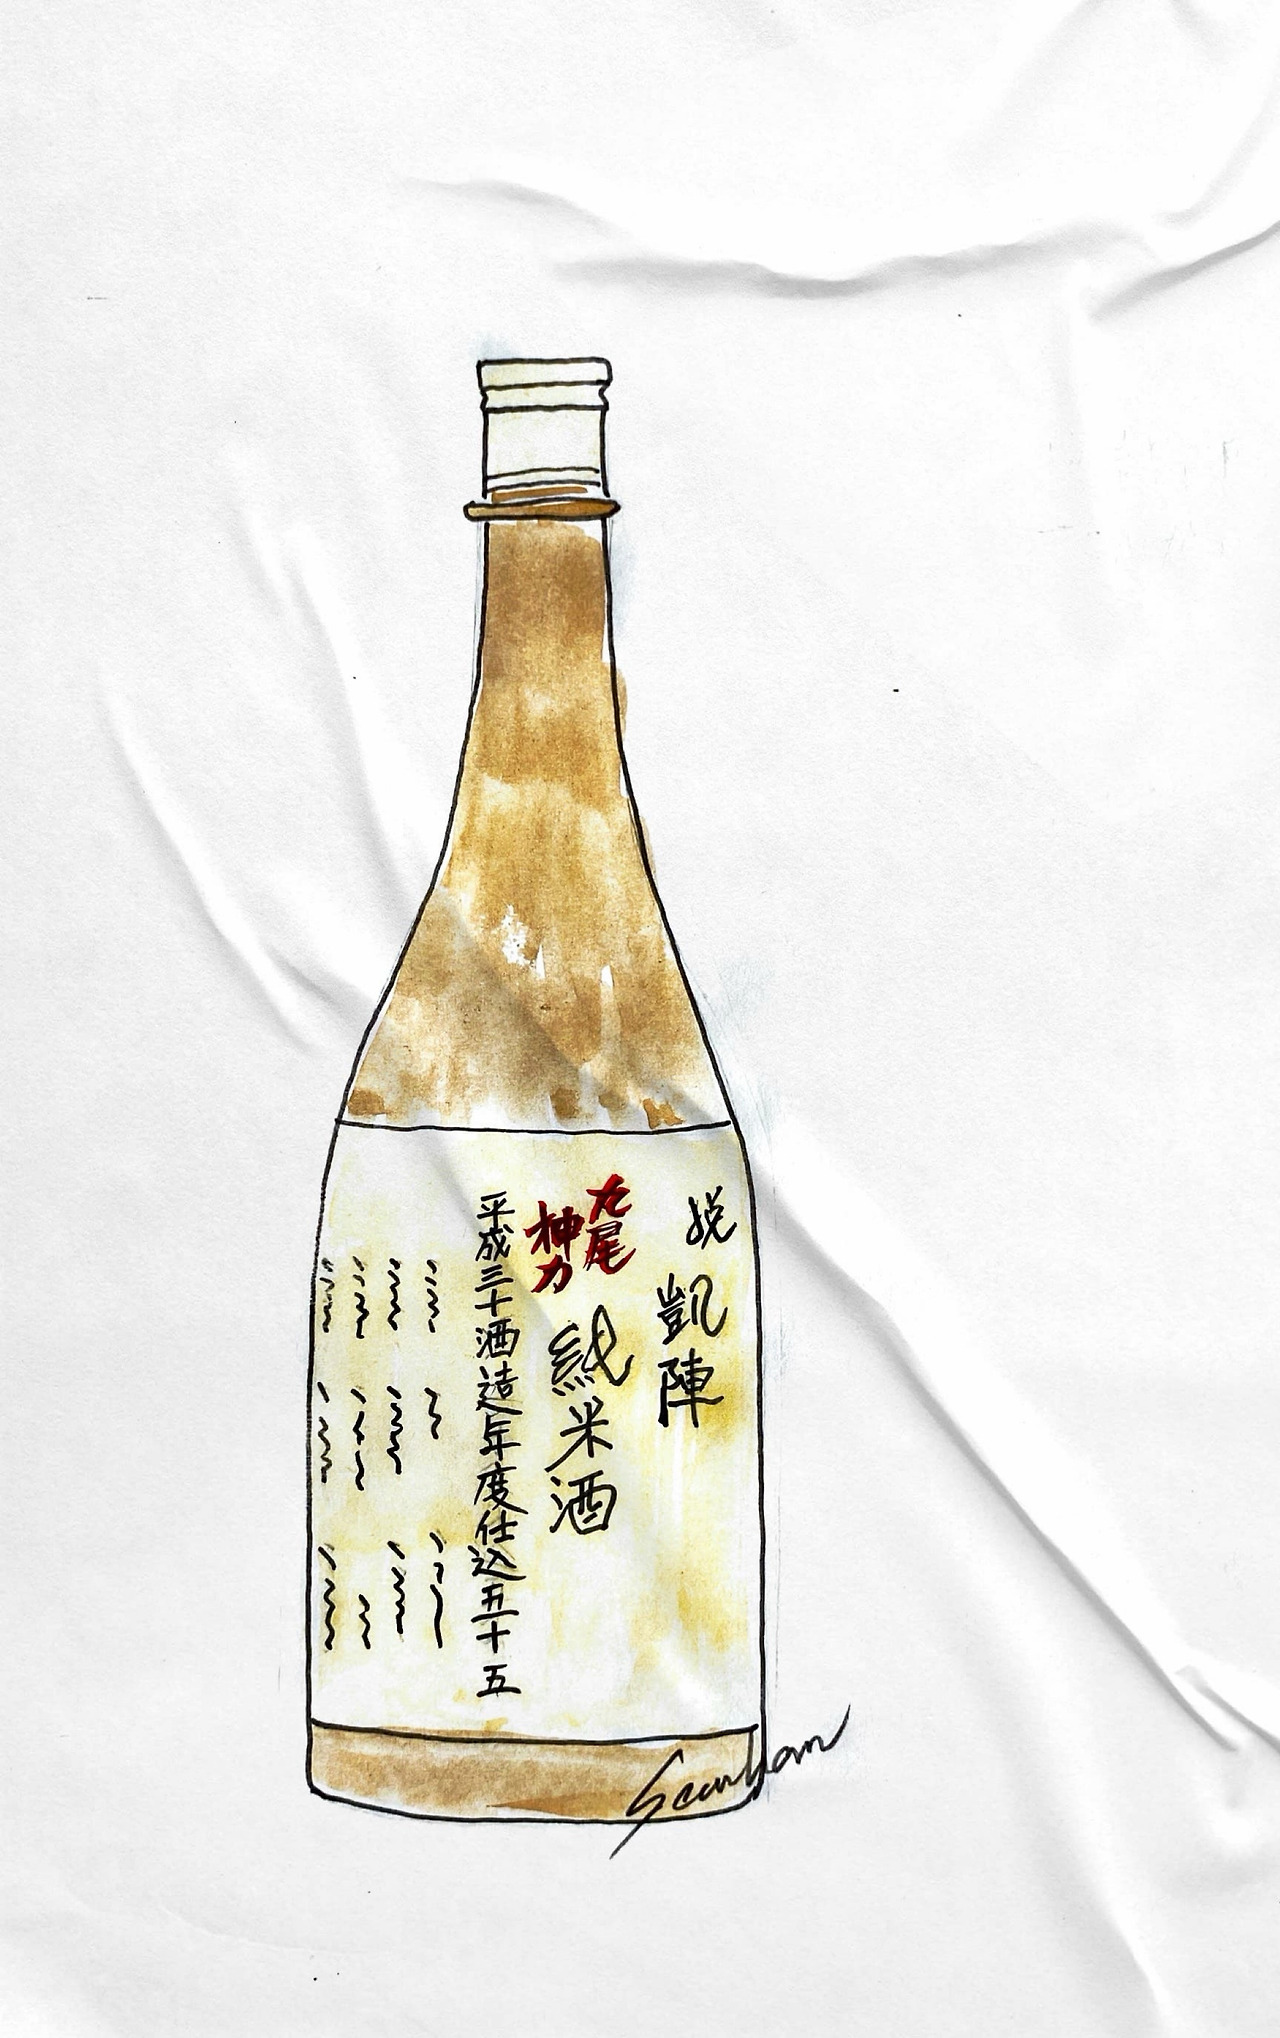 悦
凱陣
丸尾
神力
純米酒
平成三十酒造年度仕込五十五